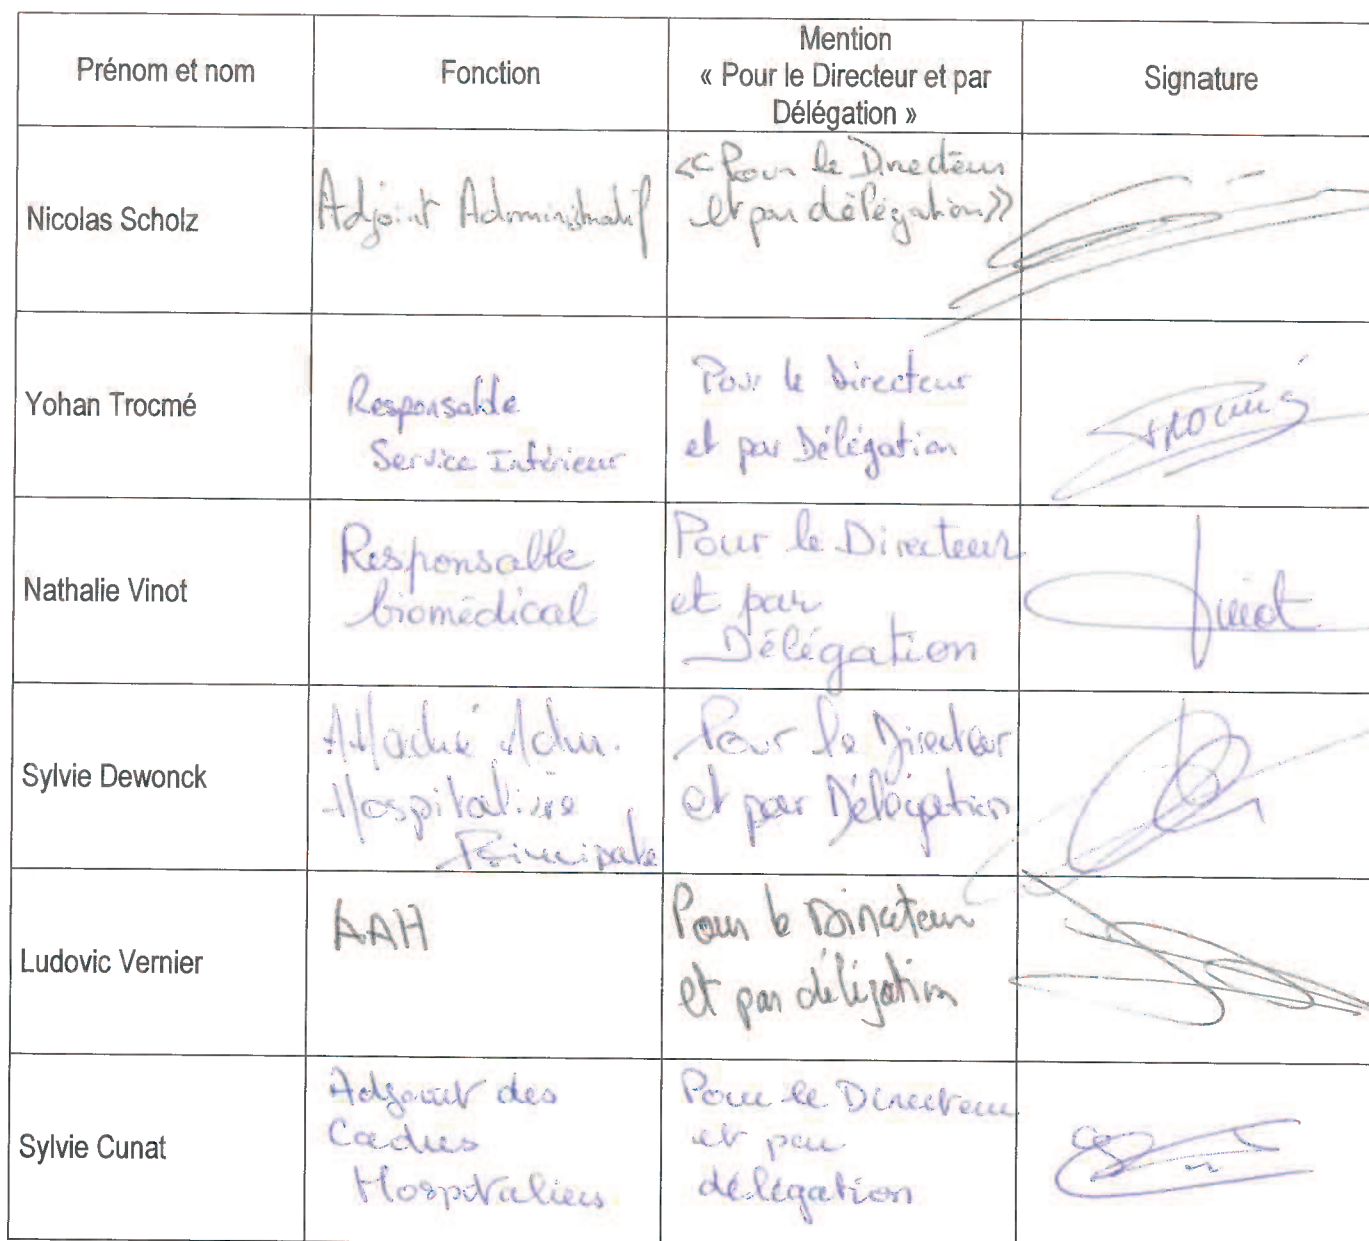 Prénom et nom
Fonction
Mention
« Pour le Directeur et par
Délégation »
Signature
Nicolas Scholz
Adjoint Administratif
<<Pour le Directeur
et par délégation>>
Yohan Trocmé
Responsable
Service Intérieur
Pour le Directeur
et par Délégation
TROCMÉ
Nathalie Vinot
Responsable
biomédical
Pour le Directeur
et par
Délégation
Vinot
Sylvie Dewonck
Attaché Adm.
Hospitalière
Principale
Pour le Directeur
et par Délégation
Ludovic Vernier
AAH
Pour le Directeur
et par délégation
Sylvie Cunat
Adjoint des
Cadres
Hospitaliers
Pour le Directeur
et par
délégation